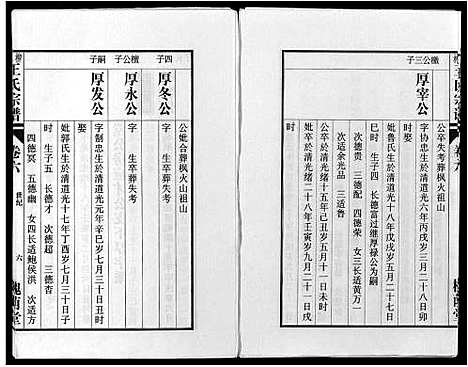 檀公三子
厚宰公
公卒失考葬枫火山祖山
字协忠生於清道光六年丙戌三月二十八日卯
时
妣鲁氏生於清道光十八年戊戌六月二十八日
巳时 生子四 长德富过继厚禄公为嗣
次德贵 三德配 四德荣 女三长适黄
次适余光品 三适鲁
公卒於清光绪十五年己丑五月十一日未时
妣卒於清光绪二十八年壬寅九月二十一日戌
时
公妣合葬枫火山祖山
四子
厚冬公
字 生卒葬失考
檀公子
厚永公
字 生卒葬失考
嗣子
厚发公
字制忠生於清道光元年辛巳七月三十日丑时
娶
妣郭氏生於清道光十七年丁酉七月三十日子
时 生子五 长德才 次德超 三德杏
四德冥 五德幽 女四长适鲍侯洪 次适方
王氏宗谱
卷六
世纪
六
槐荫堂